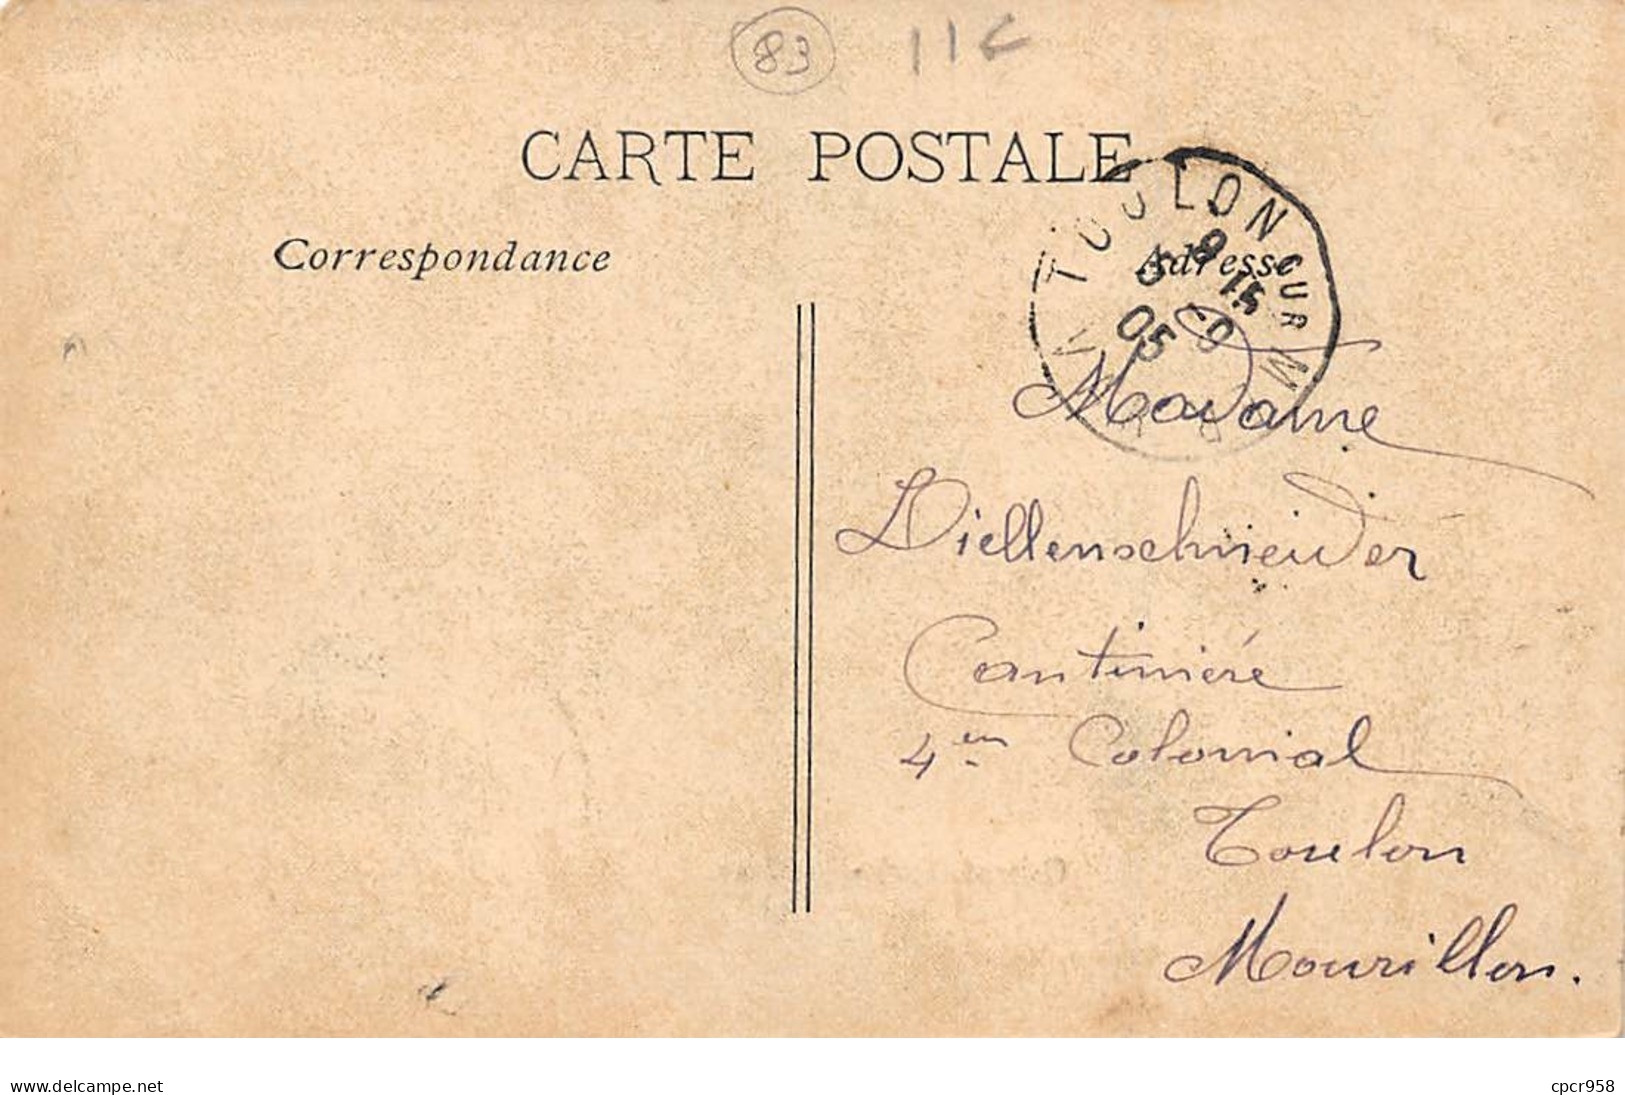 83 11
CARTE POSTALE
Correspondance
Adresse
TOULON SUR M
8 15
5
05
Madame
Diellenschneider
Cantinière
4em Colonial
Toulon
Mourillon.
www.delcampe.net
cpcr958